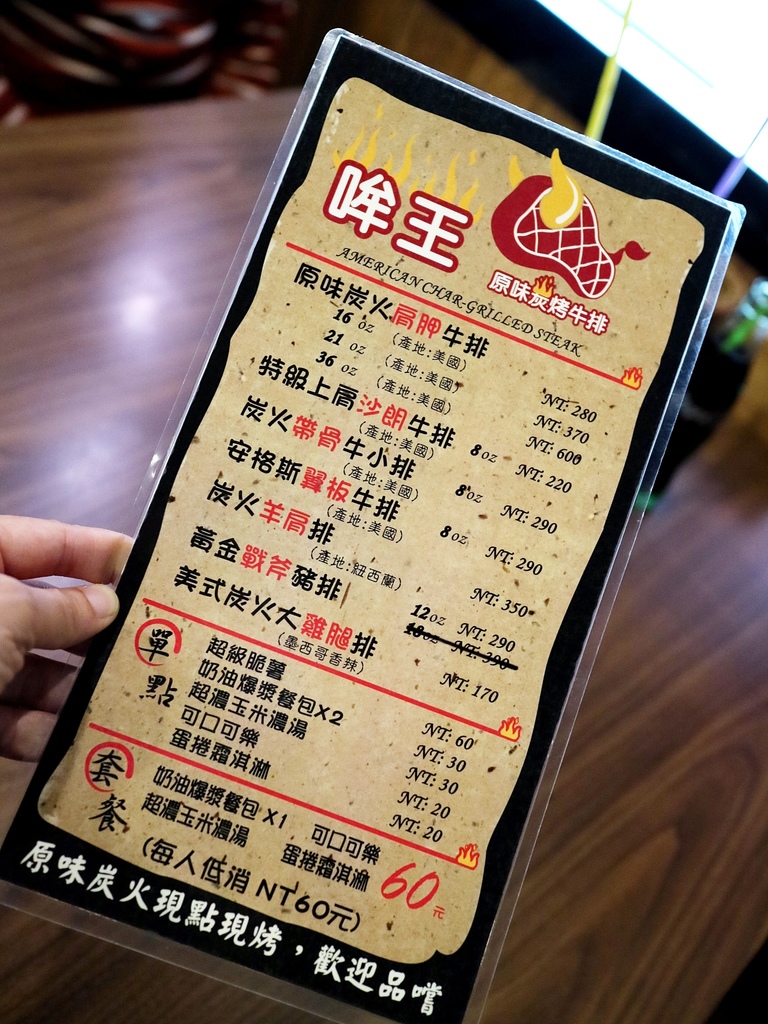 哞王
原味炭烤牛排
AMERICAN CHAR-GRILLED STEAK
原味炭火肩胛牛排
16 oz (產地:美國) NT: 280
21 oz (產地:美國) NT: 370
36 oz (產地:美國) NT: 600
特級上肩沙朗牛排 8oz NT: 220
(產地:美國)
炭火帶骨牛小排 8oz NT: 290
(產地:美國)
安格斯翼板牛排 8oz NT: 290
(產地:美國)
炭火羊肩排 NT: 350
(產地:紐西蘭)
黃金戰斧豬排 12oz NT: 290
18oz NT: 390
美式炭火大雞腿排 NT: 170
(墨西哥香辣)
單點
超級脆薯 NT: 60
奶油爆漿餐包X2 NT: 30
超濃玉米濃湯 NT: 30
可口可樂 NT: 20
蛋捲霜淇淋 NT: 20
套餐
奶油爆漿餐包 X1 可口可樂
超濃玉米濃湯 蛋捲霜淇淋 60元
(每人低消 NT60元)
原味炭火現點現烤，歡迎品嚐